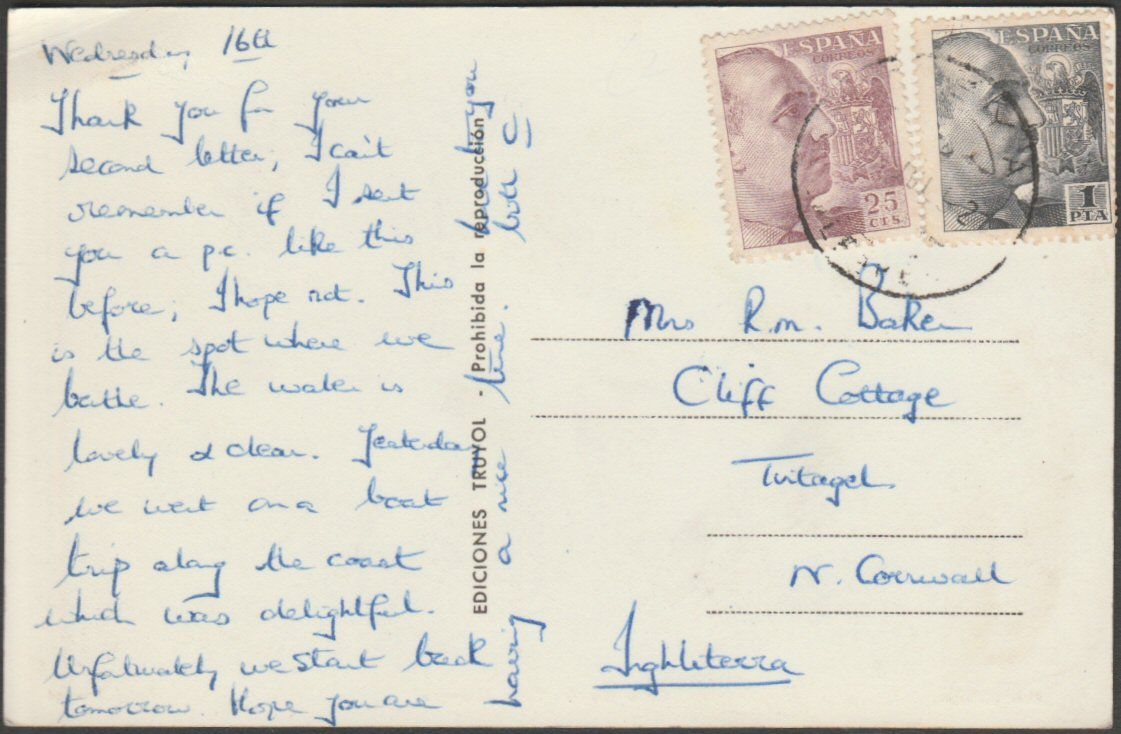 Wednesday 16th
Thank you for your
second letter, I can't
remember if I sent
you a p.c. like this
before, I hope not. This
is the spot where we
bathe. The water is
lovely & clear. Yesterday
we went on a boat
trip along the coast
which was delightful.
Unfortunately we start back
tomorrow. Hope you are
having a nice time.
both
EDICIONES TRUYOL - Prohibida la reproducción
ESPAÑA
CORREOS
25
CTS.
ESPAÑA
CORREOS
1
PTA
Mrs R.M. Baker
Cliff Cottage
Tintagel
N. Cornwall
Inghleterra